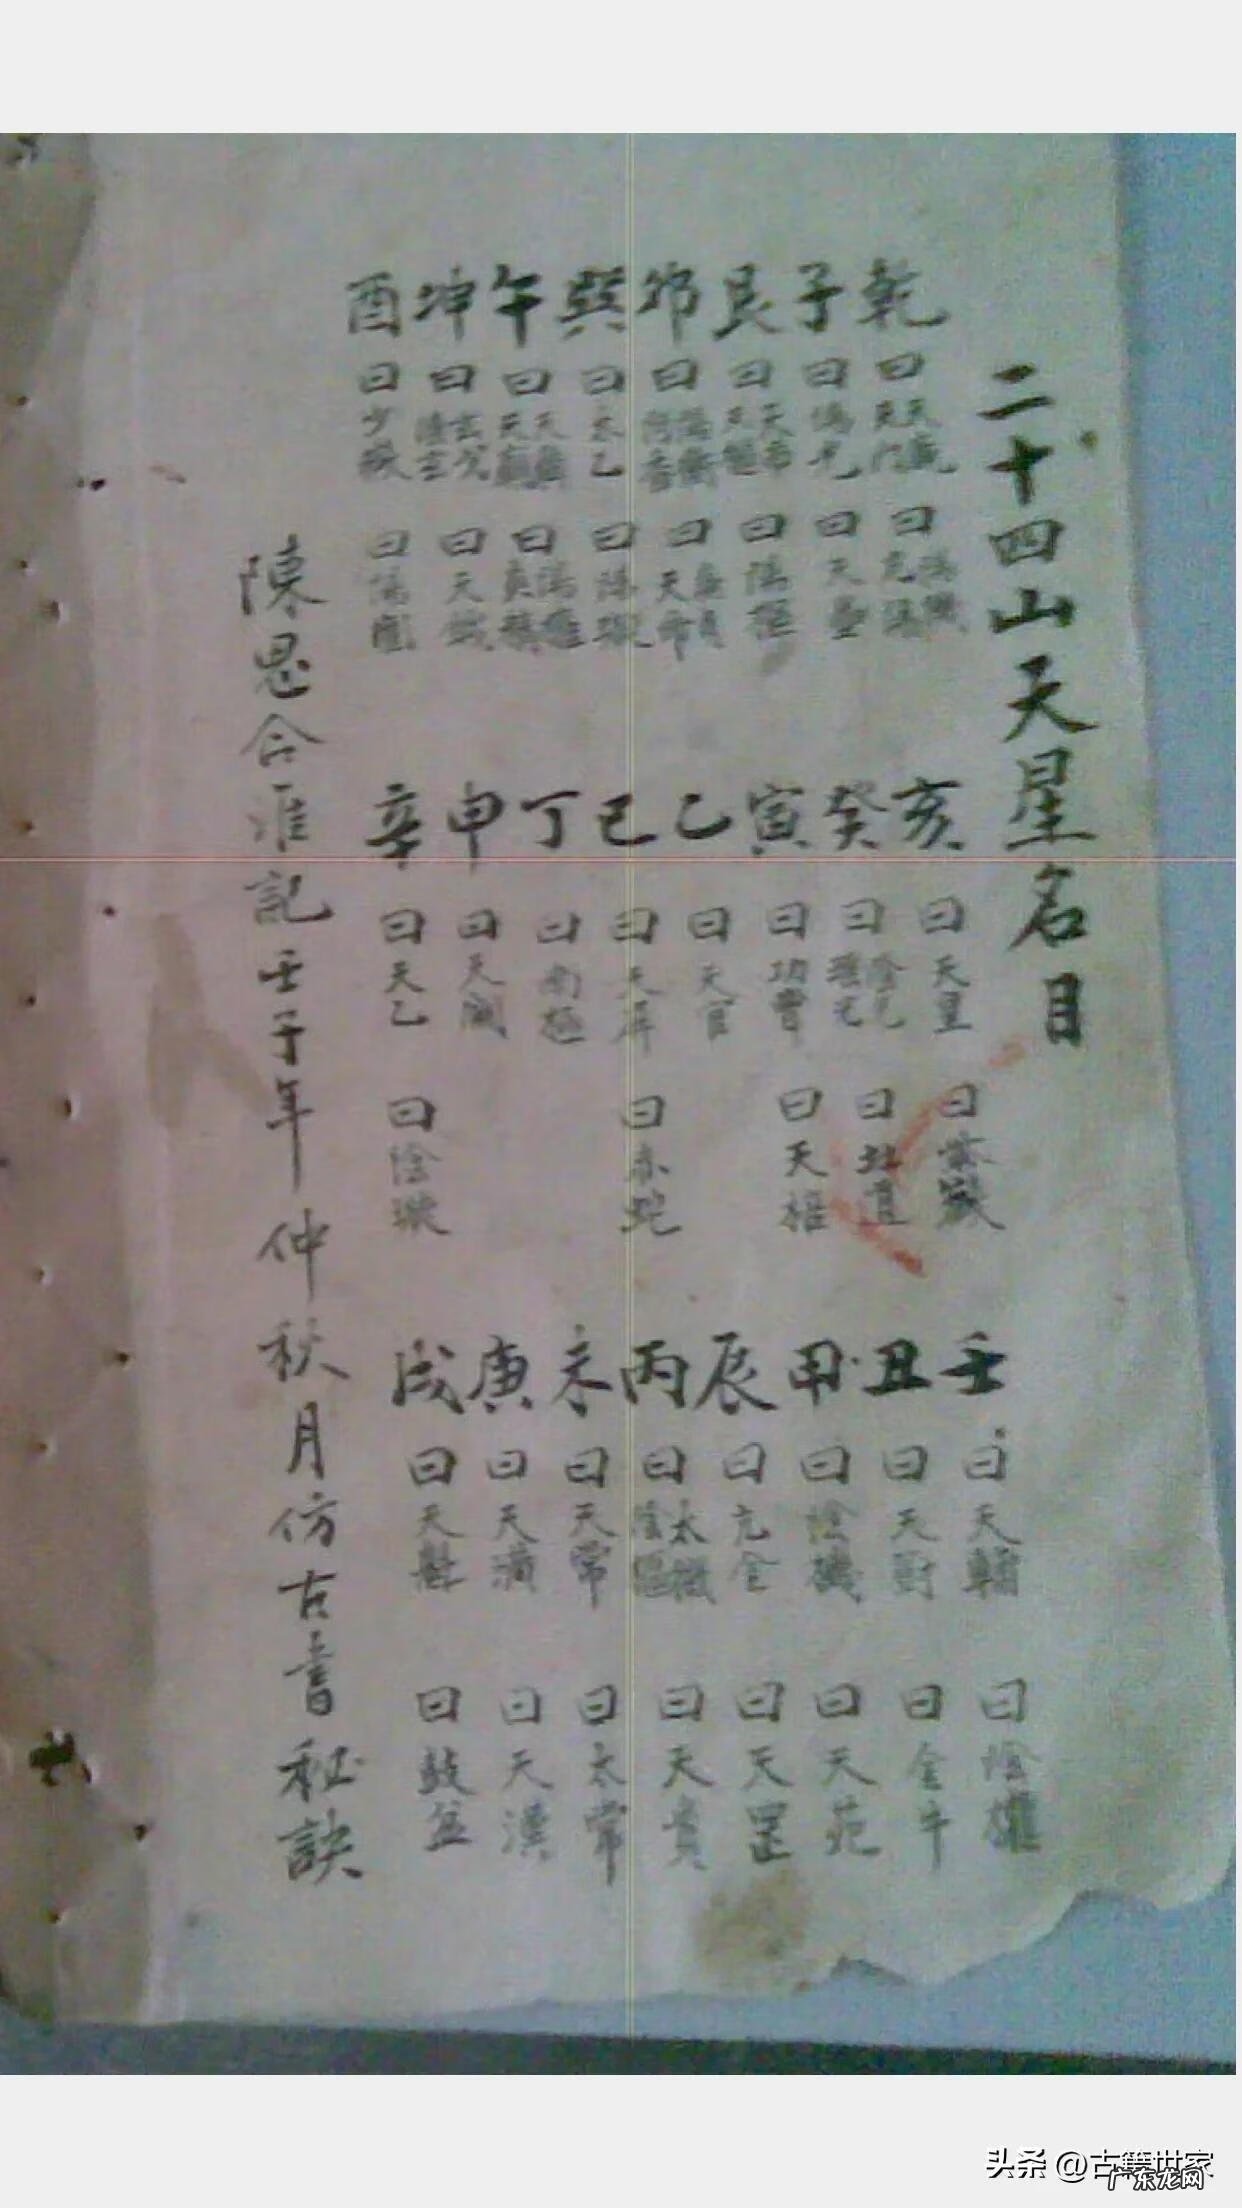 二十四山天星名目
乾 曰天廐天門 曰陽璣 亥 曰天皇 曰紫微 壬 曰天輔 曰陰權
子 曰陽光 曰天壘 癸 曰陰光 曰北道 丑 曰天厨 曰金牛
艮 曰天市 曰陽樞 寅 曰功曹 曰天 甲 曰陰璣 曰天苑
卯 曰陽衡 曰天命 乙 曰天官 辰 曰亢金 曰天罡
巽 曰太乙 曰陽璇 巳 曰天屏 曰赤蛇 丙 曰太微陰樞 曰天貴
午 曰 曰陽權 丁 曰南極 未 曰天常 曰太常
坤 曰玄戈 曰天鉞 申 曰天 庚 曰天潢 曰天漢
酉 曰少微 曰陽 辛 曰天乙 曰陰璇 戌 曰天魁 曰鼓盆
陳恩合准記壬子年仲秋月仿古書秘訣
头条 @古籍世家
广东龙网